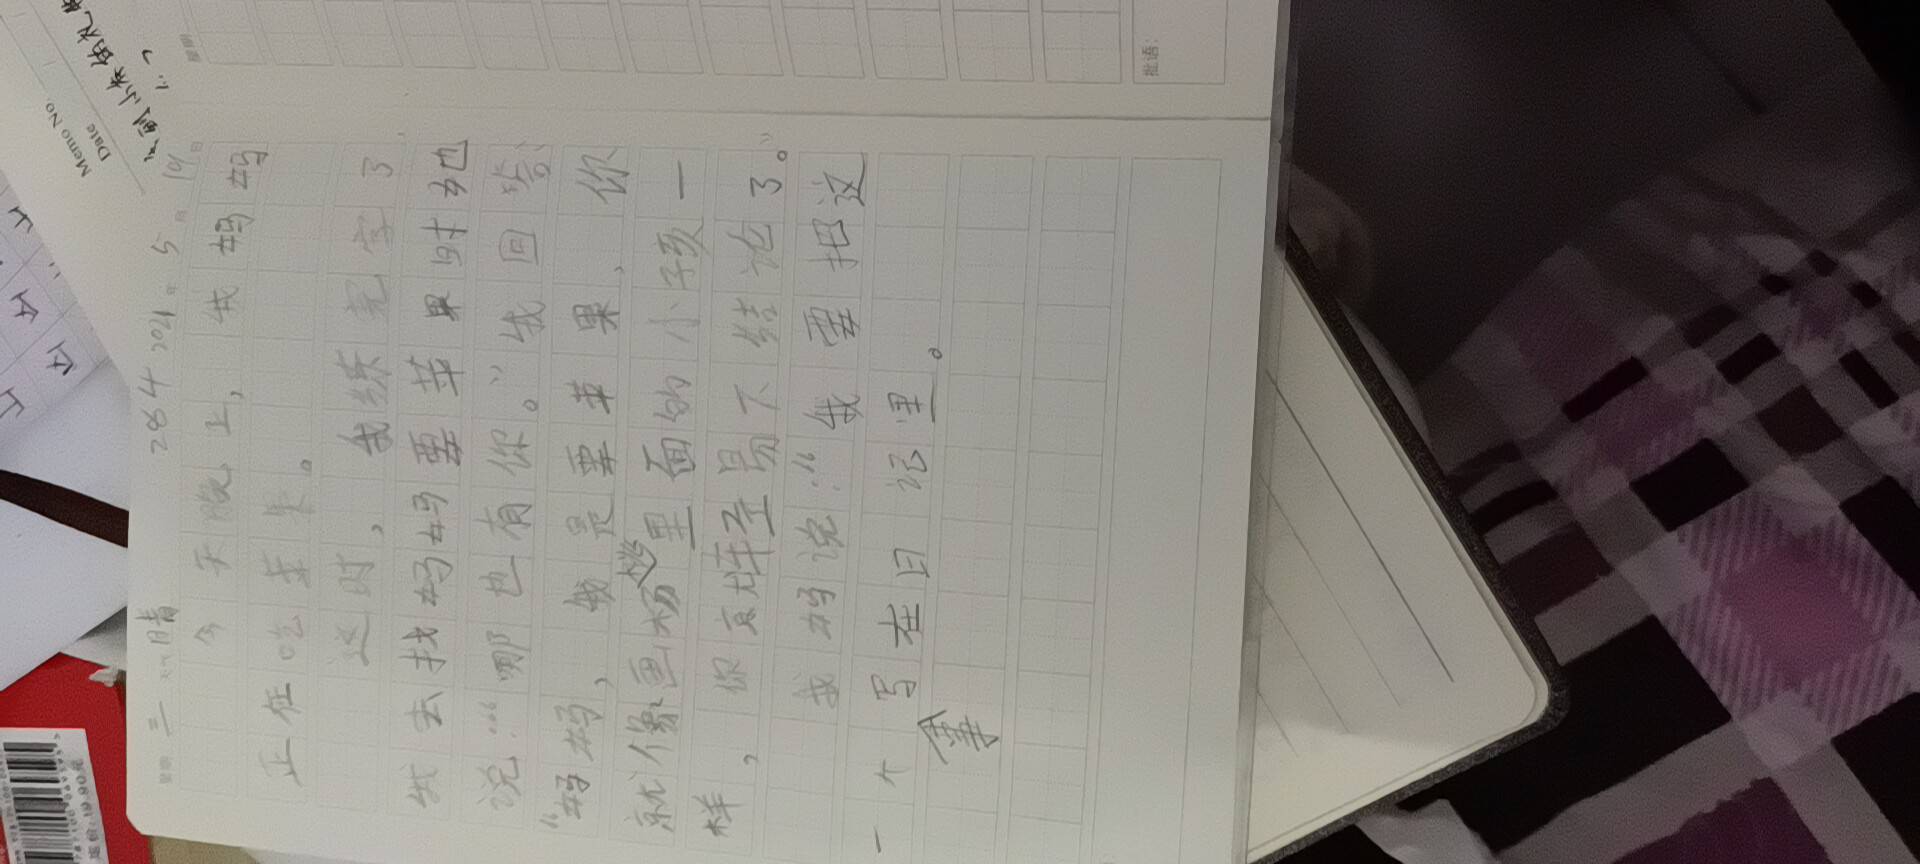 星期三 天气晴 284 2021年5月19日
今天晚上,我妈妈
正在吃苹果。
这时,我练完字了,
我去找妈妈要苹果时她
说:“哪也有你。”我回答:
“妈妈,我是要苹果,你
就像画杨里面的小孩一
样,你 易下结论了。”
我妈说:“我要把这
一个事写在日记里。
批语:
Memo No.
Date